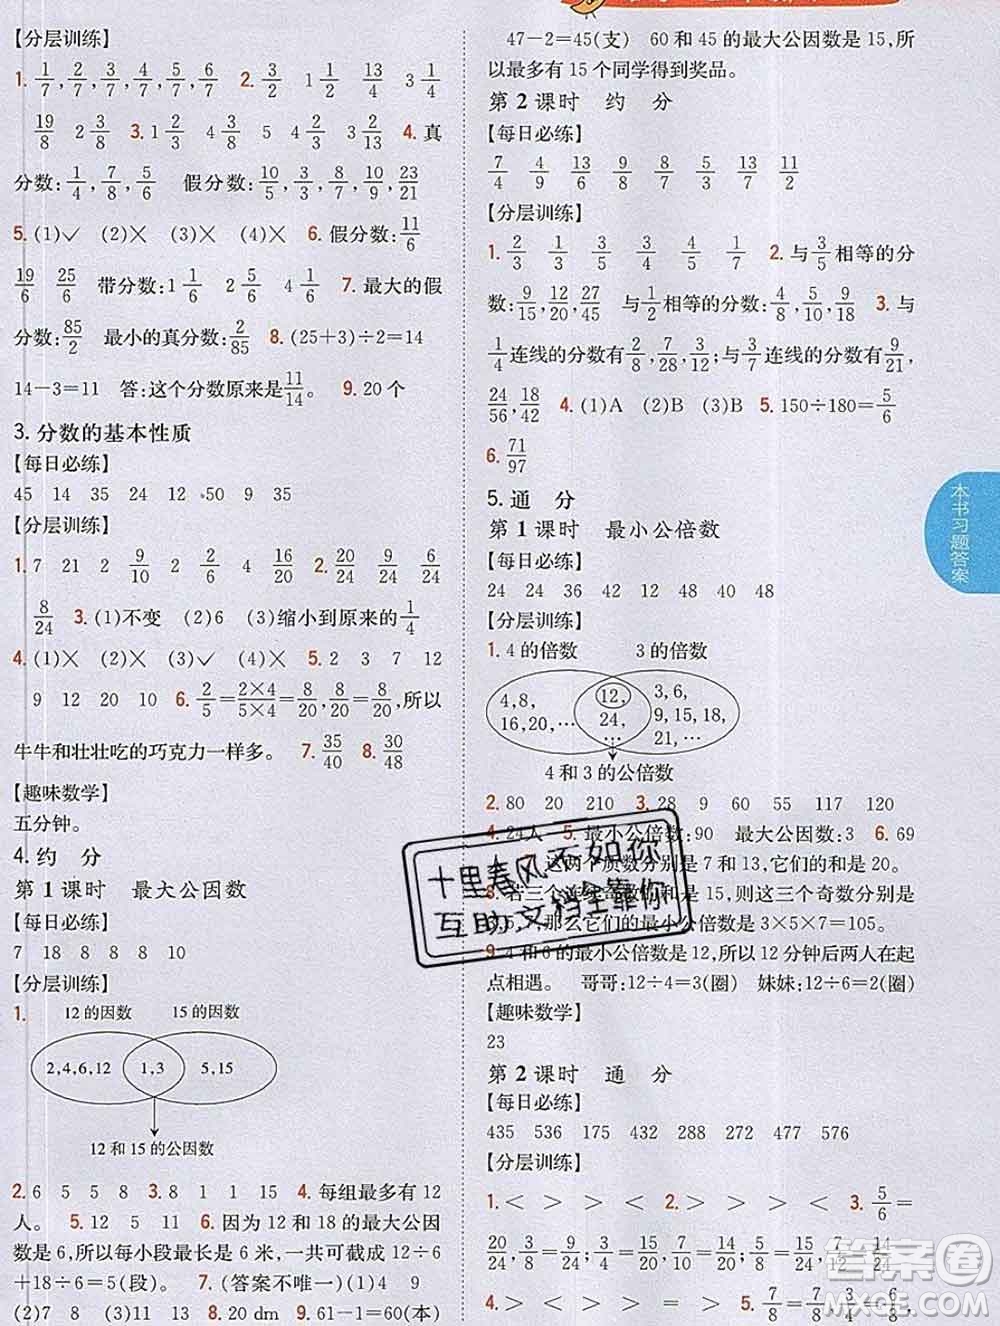 【分层训练】
1. 1/7, 2/7, 3/7, 4/7, 5/7, 6/7 2. 3/3 1 2/3 13/4 4 1/4
19/8 2 3/8 3. 1 2/3 4 3/4 5 4 2/3 2 4/13 4. 真
分数: 1/4, 7/8, 5/6 假分数: 10/5, 3/3, 11/7, 10/6, 23/21
5. (1)✓ (2)✕ (3)✕ (4)✕ 6. 假分数: 11/6
19/6 25/6 带分数: 1 1/6 2 1/6 4 1/6 7. 最大的假
分数: 85/2 最小的真分数: 2/85 8. (25+3)÷2=14
14-3=11 答:这个分数原来是11/14。 9. 20 个
3. 分数的基本性质
【每日必练】
45 14 35 24 12 50 9 35
【分层训练】
1. 7 21 2 9/10 2 4 16/20 2. 20/24 4/24 6/24
8/24 3. (1)不变 (2)6 (3)缩小到原来的1/4
4. (1)✕ (2)✕ (3)✓ (4)✕ 5. 2 3 7 12
9 12 20 6. 2/5=2×4/5×4=8/20, 8/20=8/20, 所以
牛牛和壮壮吃的巧克力一样多。 7. 35/40 8. 30/48
【趣味数学】
五分钟。
4. 约 分
第 1 课时 最大公因数
【每日必练】
7 18 8 8 8 10
【分层训练】
1. 12 的因数 15 的因数
2,4,6,12 1,3 5,15
12 和 15 的公因数
2. 6 5 5 8 3. 8 1 1 15 4. 每组最多有 12
人。 5. 12 5 11 6. 因为 12 和 18 的最大公因
数是 6,所以每小段最长是 6 米,一共可截成 12÷6
+18÷6=5(段)。 7. (答案不唯一)(1)4 9
(2)7 8 (3)11 13 8. 20 dm 9. 61-1=60(本)
47-2=45(支) 60 和 45 的最大公因数是 15,所
以最多有 15 个同学得到奖品。
第 2 课时 约 分
【每日必练】
7/4 4/9 13/6 9/8 8/7 7/4 13/7 11/2
【分层训练】
1. 2/3 1/3 3/5 5/7 1/2 2. 与3/5相等的分
数: 9/15, 12/20, 27/45 与1/2相等的分数: 4/8, 5/10 3. 与
1/4连线的分数有2/8, 7/28, 3/12;与3/7连线的分数有9/21,
24/56, 18/42 4. (1)A (2)B (3)B 5. 150÷180=5/6
6. 71/97
5. 通 分
第 1 课时 最小公倍数
【每日必练】
24 24 36 12 48 40 48
【分层训练】
1. 4 的倍数 3 的倍数
4,8, 12, 3,6,
16,20,… 24, 9,15,18,
… …
4 和 3 的公倍数
2. 80 20 210 3. 28 9 60 55 117 120
4. 24人 5. 最小公倍数:90 最大公因数:3 6. 69
这两个质数分别是 7 和 13,它们的和是 20。
8. 若三个连续奇数的和是15,那么这三个奇数分别是
那么它们的最小公倍数 3×5×7=105。
9. 4 和 6 的最小公倍数是 12,12 分钟后两人在起
点相遇。 哥哥:12÷4=3(圈) 妹妹:12÷6=2(圈)
【趣味数学】
23
第 2 课时 通 分
【每日必练】
435 536 175 432 288 272 477 576
【分层训练】
1. < < > > < < 2. > < > 3. 5/6=
20/24
4. > < > > < >
本书习题答案
十里春风不如你
互助文档全靠你
答案圈
MXQE.COM